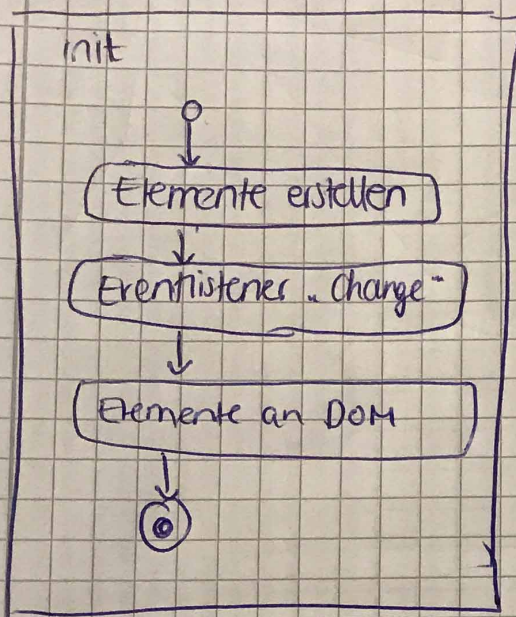 init
Elemente erstellen
Eventlistener „Change"
Elemente an DOM